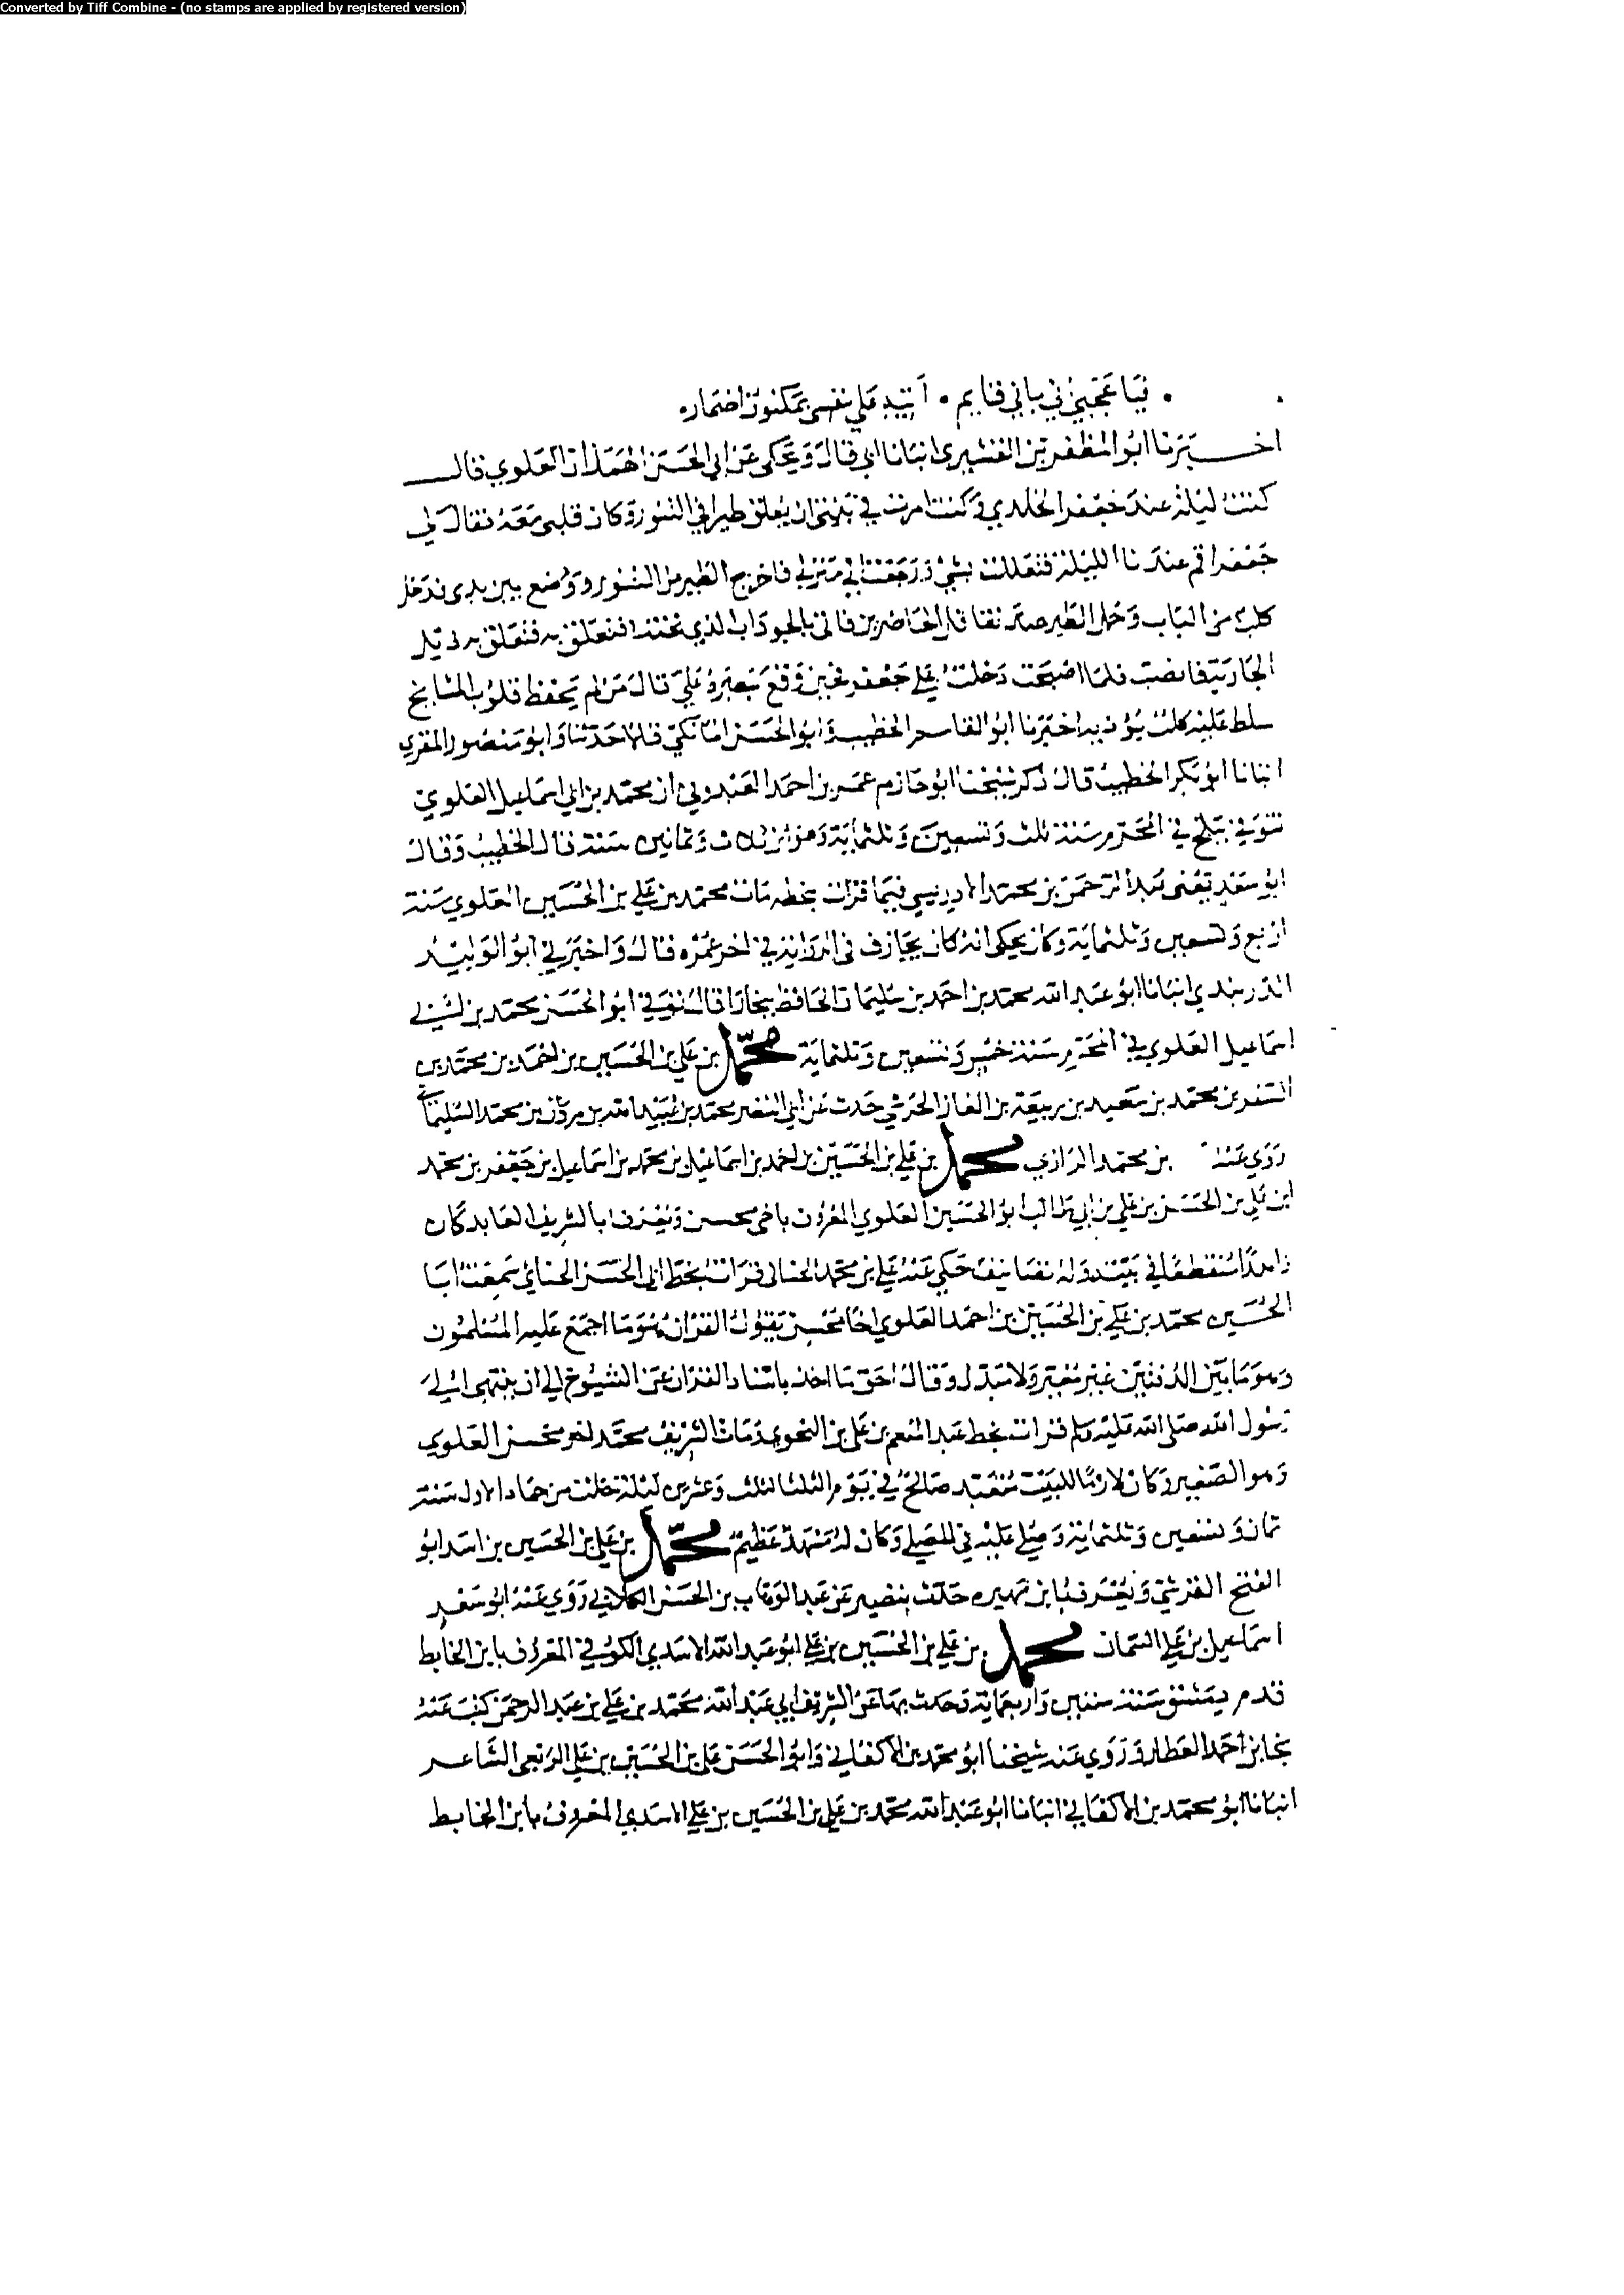 Converted by Tiff Combine - (no stamps are applied by registered version)
اخبرنا ابو المظفر بن القشيري انبانا ابي قال ويحكى عن ابي الحسن الهمذاني العلوي قال
كنت ليلة عند جعفر الخلدي وكنت امرت في بيتي ان يعلق طير في التنور وكان قلبي معه فقال لي
جعفر اقم عندنا الليلة فتعللت بشيء ورجعت الى منزلي فاخرج الطير من التنور ووضع بين يدي فدخل
كلب من الباب وحمل الطير عند تغافل الحاضرين فاتي بالجوذاب الذي تحته فتعلق به ذيل
الجارية فانصب فلما اصبحت دخلت على جعفر فحين وقع بصره علي قال من لم يحفظ قلوب المشايخ
سلط عليه كلب يؤذيه اخبرنا ابو القاسم الخطيب وابو الحسن المالكي قالا حدثنا وابو منصور المقرئ
انبانا ابو بكر الخطيب قال ذكر شيخنا ابو حازم عمر بن احمد العبدوي ان محمد بن ابي اسماعيل العلوي
توفي ببلخ في المحرم سنة ثلث وتسعين وثلثماية وهو ابن ثلاث وثمانين سنة قال الخطيب وقال
ابو سعد يعني عبد الرحمن بن محمد الادريسي فيما قرات بخطه مات محمد بن علي بن الحسين العلوي سنة
اربع وتسعين وثلثماية وكان يحكى انه كان يجازف في الرواية في اخر عمره قال واخبرني ابو الوليد
الدربندي انبانا ابو عبد الله محمد بن احمد بن سليمان الحافظ ببخارا قال توفي ابو الحسن محمد بن ابي
اسماعيل العلوي في المحرم سنة خمس وتسعين وثلثماية محمد بن علي بن الحسين بن احمد بن محمد بن
السفر بن محمد بن سعيد بن ربيعة بن الغاز الحرشي حدث عن ابي النضر محمد بن عبيد الله بن مروان بن محمد السليماني
روى عنه بن محمد الرازي محمد بن علي بن الحسين بن احمد بن اسماعيل بن محمد بن اسماعيل بن جعفر بن محمد
ابن علي بن الحسين بن علي بن ابي طالب ابو الحسين العلوي المعروف باخي محسن ويعرف بالشريف العابد كان
زاهدا منقطعا في بيته وله تصانيف حكى عنه علي بن محمد الحنائي قرات بخط ابي الحسن الحنائي سمعت ابا
الحسين محمد بن علي بن الحسين بن احمد العلوي اخا محسن يقول القران هو ما اجتمع عليه المسلمون
وهو ما بين الدفتين غير مغير ولا مبدل وقال احق ما اخذ باسناد القران عن الشيوخ الى ان ينتهى الى
رسول الله صلى الله عليه وسلم قرات بخط عبد المنعم بن علي بن النحوي ومات الشريف محمد اخو محسن العلوي
وهو الصغير وكان لازما للبيت متعبد صالح في يوم الثلثا لثلث وعشرين ليلة خلت من جمادا الاول سنة
ثمان وتسعين وثلثماية وصلي عليه في المصلى وكان له مشهد عظيم محمد بن علي بن الحسين بن اسد ابو
الفتح القرشي ويعرف بابن حدث عن عبد الوهاب بن الحسن الكلابي روى عنه ابو سعد
اسماعيل بن علي السمان محمد بن علي بن الحسين بن علي ابو عبد الله الاسدي الكوفي المعروف بابن الخابط
قدم دمشق سنة ستين واربعماية وحدث بها عن الشريف ابي عبد الله محمد بن علي بن عبد الرحمن كتب عنه
نجا بن احمد العطار وروى عنه شيخنا ابو محمد بن الاكفاني وابو الحسن علي بن الحسين بن علي الشاعر
انبانا ابو محمد بن الاكفاني انبانا ابو عبد الله محمد بن علي بن الحسين بن علي الاسدي المعروف بابن الخابط